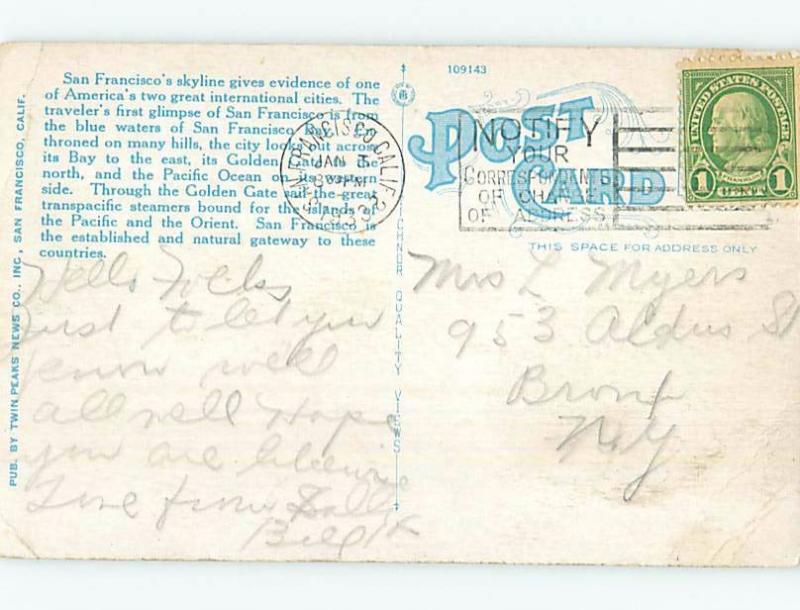 San Francisco's skyline gives evidence of one
of America's two great international cities. The
traveler's first glimpse of San Francisco is from
the blue waters of San Francisco
throned on many hills, the city looks out across
its Bay to the east, its Golden the
north, and the Pacific Ocean on its western
side. Through the Golden Gate sail the great
transpacific steamers bound for the islands of
the Pacific and the Orient. San Francisco is
the established and natural gateway to these
countries.
PUB. BY TWIN PEAKS NEWS CO., INC., SAN FRANCISCO, CALIF.
Hello Folks
Just to let you
know well
all well Hope
you are likewise
Love from
Bill
TICHNOR QUALITY VIEWS
109143
POST
CARD
SAN FRANCISCO, CALIF.
JAN 5
PM
NOTIFY
YOUR
CORRESPONDENTS
OF CHANGE
OF ADDRESS
UNITED STATES POSTAGE
FRANKLIN
1 CENT 1
THIS SPACE FOR ADDRESS ONLY
Mrs L Myers
953 Aldus St
Bronx
N.Y